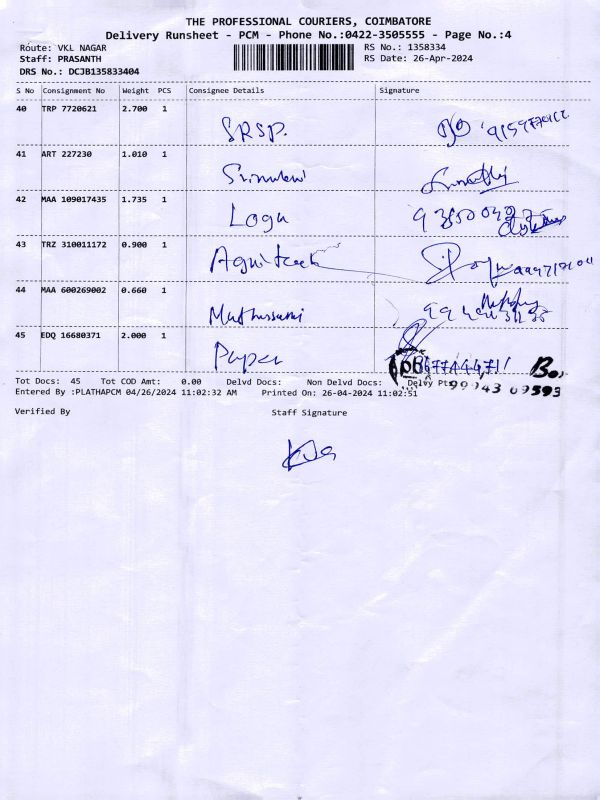 THE PROFESSIONAL COURIERS, COIMBATORE
Delivery Runsheet - PCM - Phone No.:0422-3505555 - Page No.:4
Route: VKL NAGAR RS No.: 1358334
Staff: PRASANTH RS Date: 26-Apr-2024
DRS No.: DCJB135833404
S No Consignment No Weight PCS Consignee Details Signature
40 TRP 7720621 2.700 1 SRSP.
41 ART 227230 1.010 1
42 MAA 109017435 1.735 1 Logu
43 TRZ 310011172 0.900 1
44 MAA 600269002 0.660 1 Muthusami
45 EDQ 16680371 2.000 1 Paper
Tot Docs: 45 Tot COD Amt: 0.00 Delvd Docs: Non Delvd Docs: Delvy Pts
99943 09593
Entered By :PLATHAPCM 04/26/2024 11:02:32 AM Printed On: 26-04-2024 11:02:51
Verified By Staff Signature